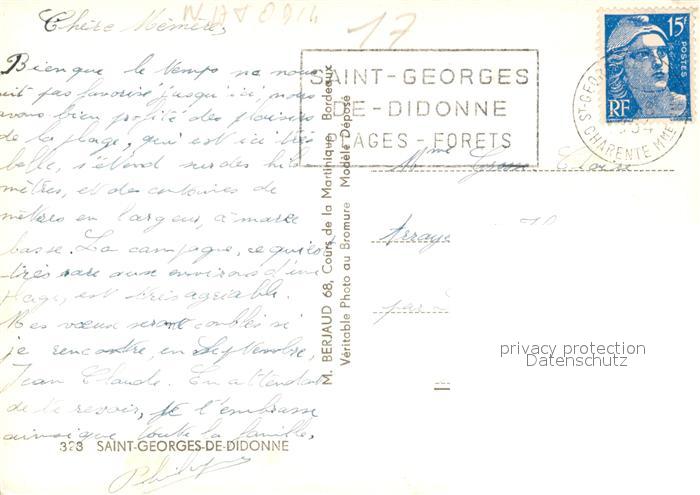 Chère Mémère,
Bien que le temps ne nous
ait pas favorisé jusqu'ici, nous
avons bien profité des plaisirs
de la plage, qui est ici très
belle, s'étend sur des kilo
mètres, et des centaines de
mètres en largeur, à marée
basse. La campagne, ce qui est
très rare aux environs d'une
plage, est très agréable.
Mes vœux seront comblés si
je rencontre, en Septembre,
Jean Claude. En attendant
de te revoir, je t'embrasse
ainsi que toute la famille,
323 SAINT-GEORGES-DE-DIDONNE
M. BERJAUD 68, Cours de la Martinique Bordeaux
Véritable Photo au Bromure Modèle Déposé
17
SAINT-GEORGES
DE-DIDONNE
PLAGES - FORETS
15F
POSTES
RF
CHARENTE MME
Mme
Arraye
par
privacy protection
Datenschutz